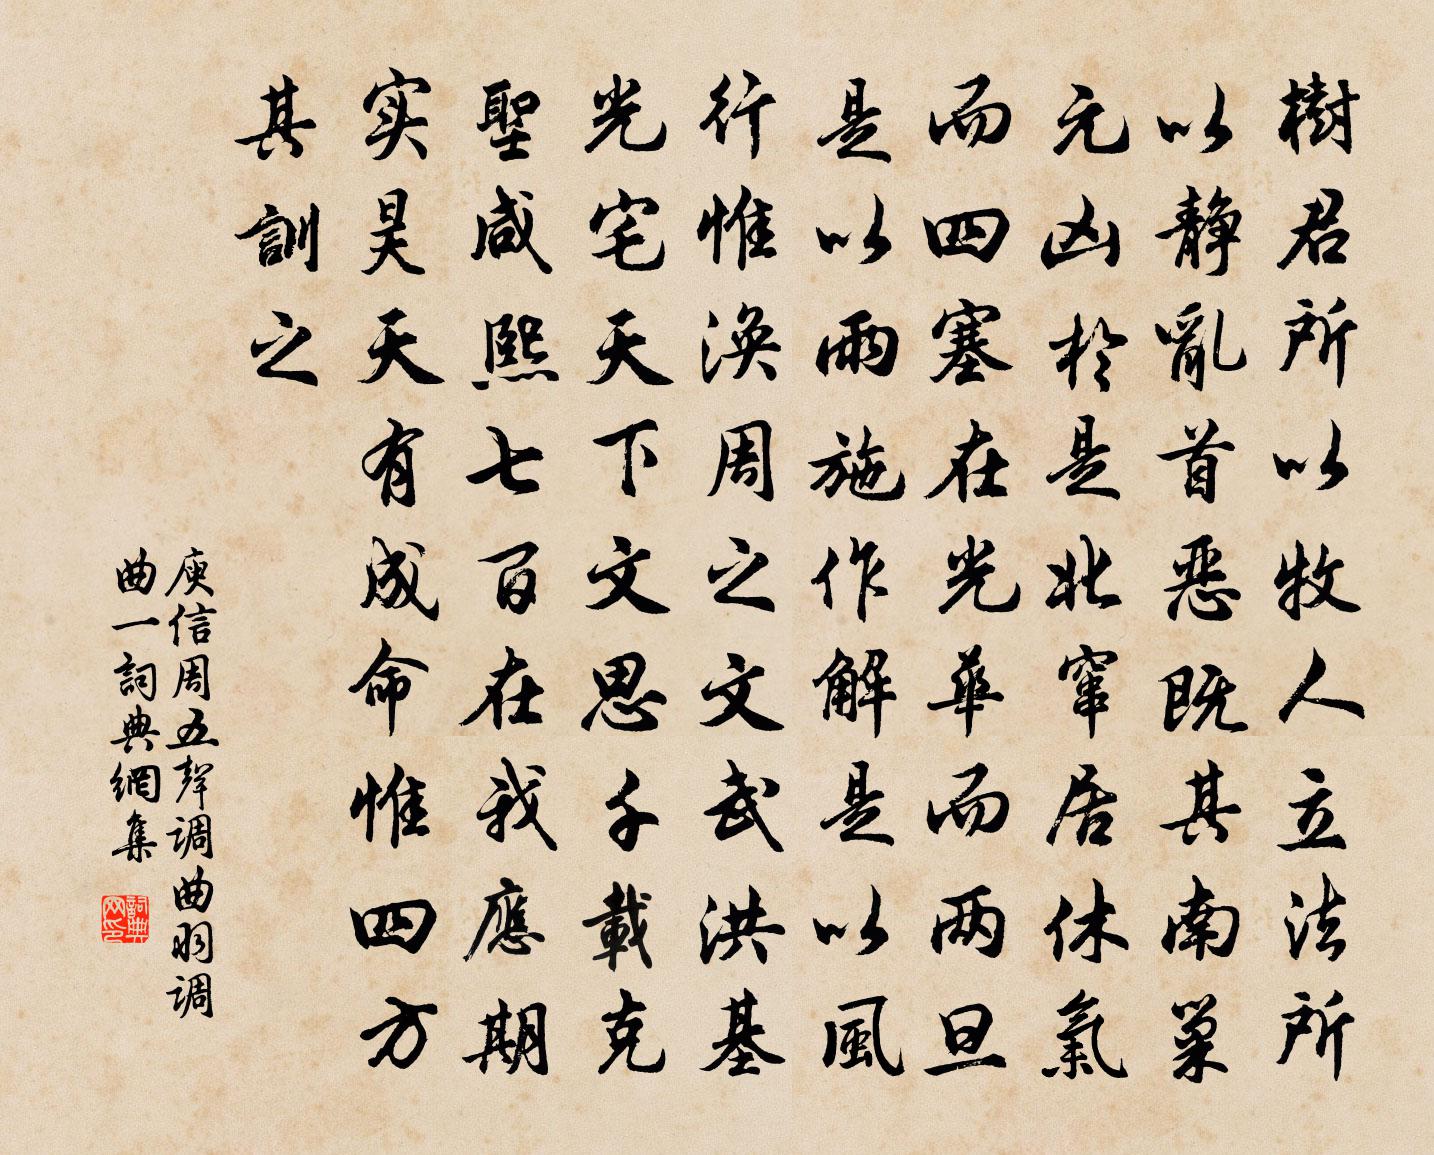 樹君所以牧人立法所
以靜亂首惡既其南巢
元凶於是北窜居休氣
而四塞在光華而两旦
是以雨施作解是以風
行惟渙周之文武洪基
光宅天下文思千載克
聖咸熙七百在我應期
实昊天有成命惟四方
其訓之
庾信周五聲调曲羽调
曲一詞典網集
詞典
网印